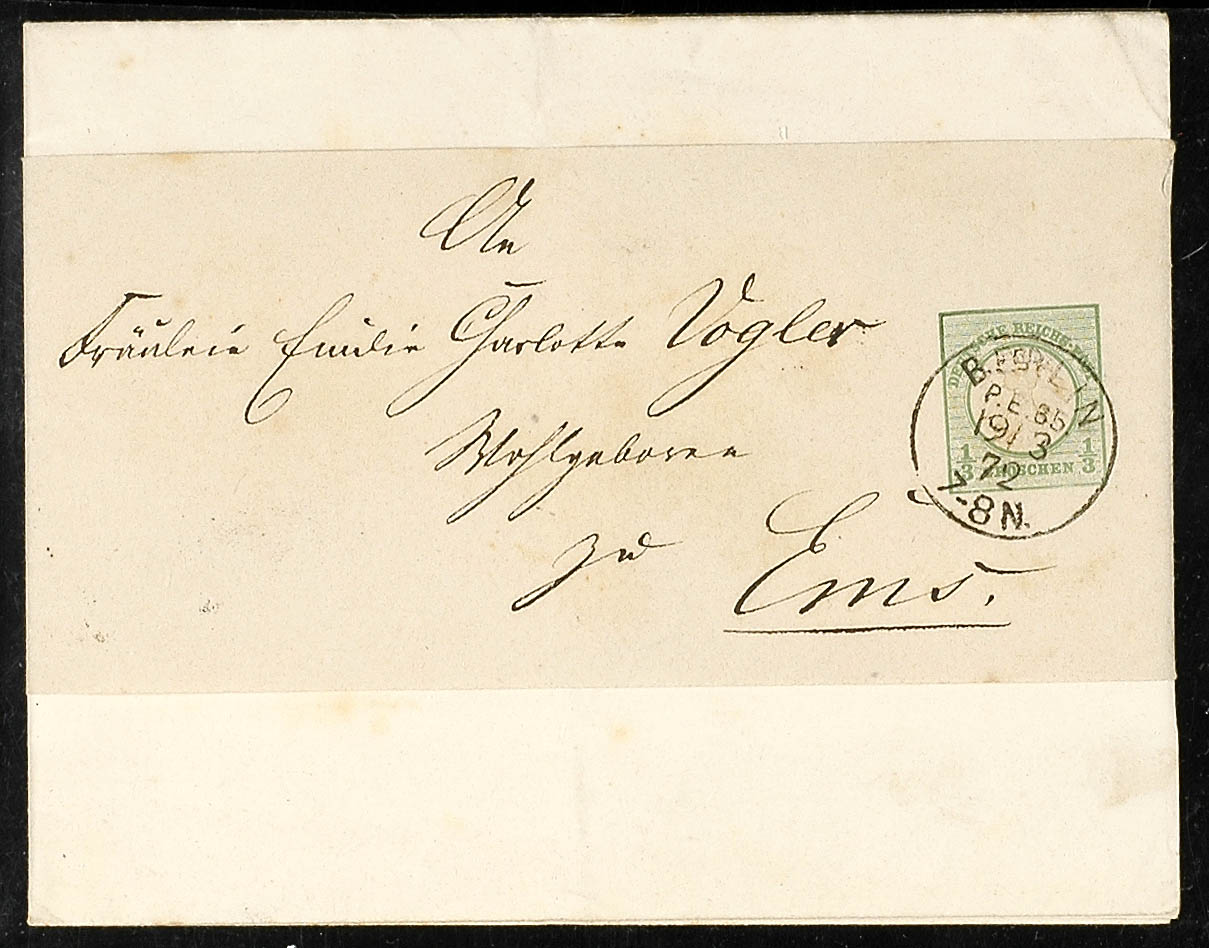 An
Fräulein Emilie Charlotte Vogler
Wohlgeboren
zu Ems.
DEUTSCHE REICHS-POST
1/3 GROSCHEN 1/3
BERLIN
P.E. 35
19/3
72
7-8 N.